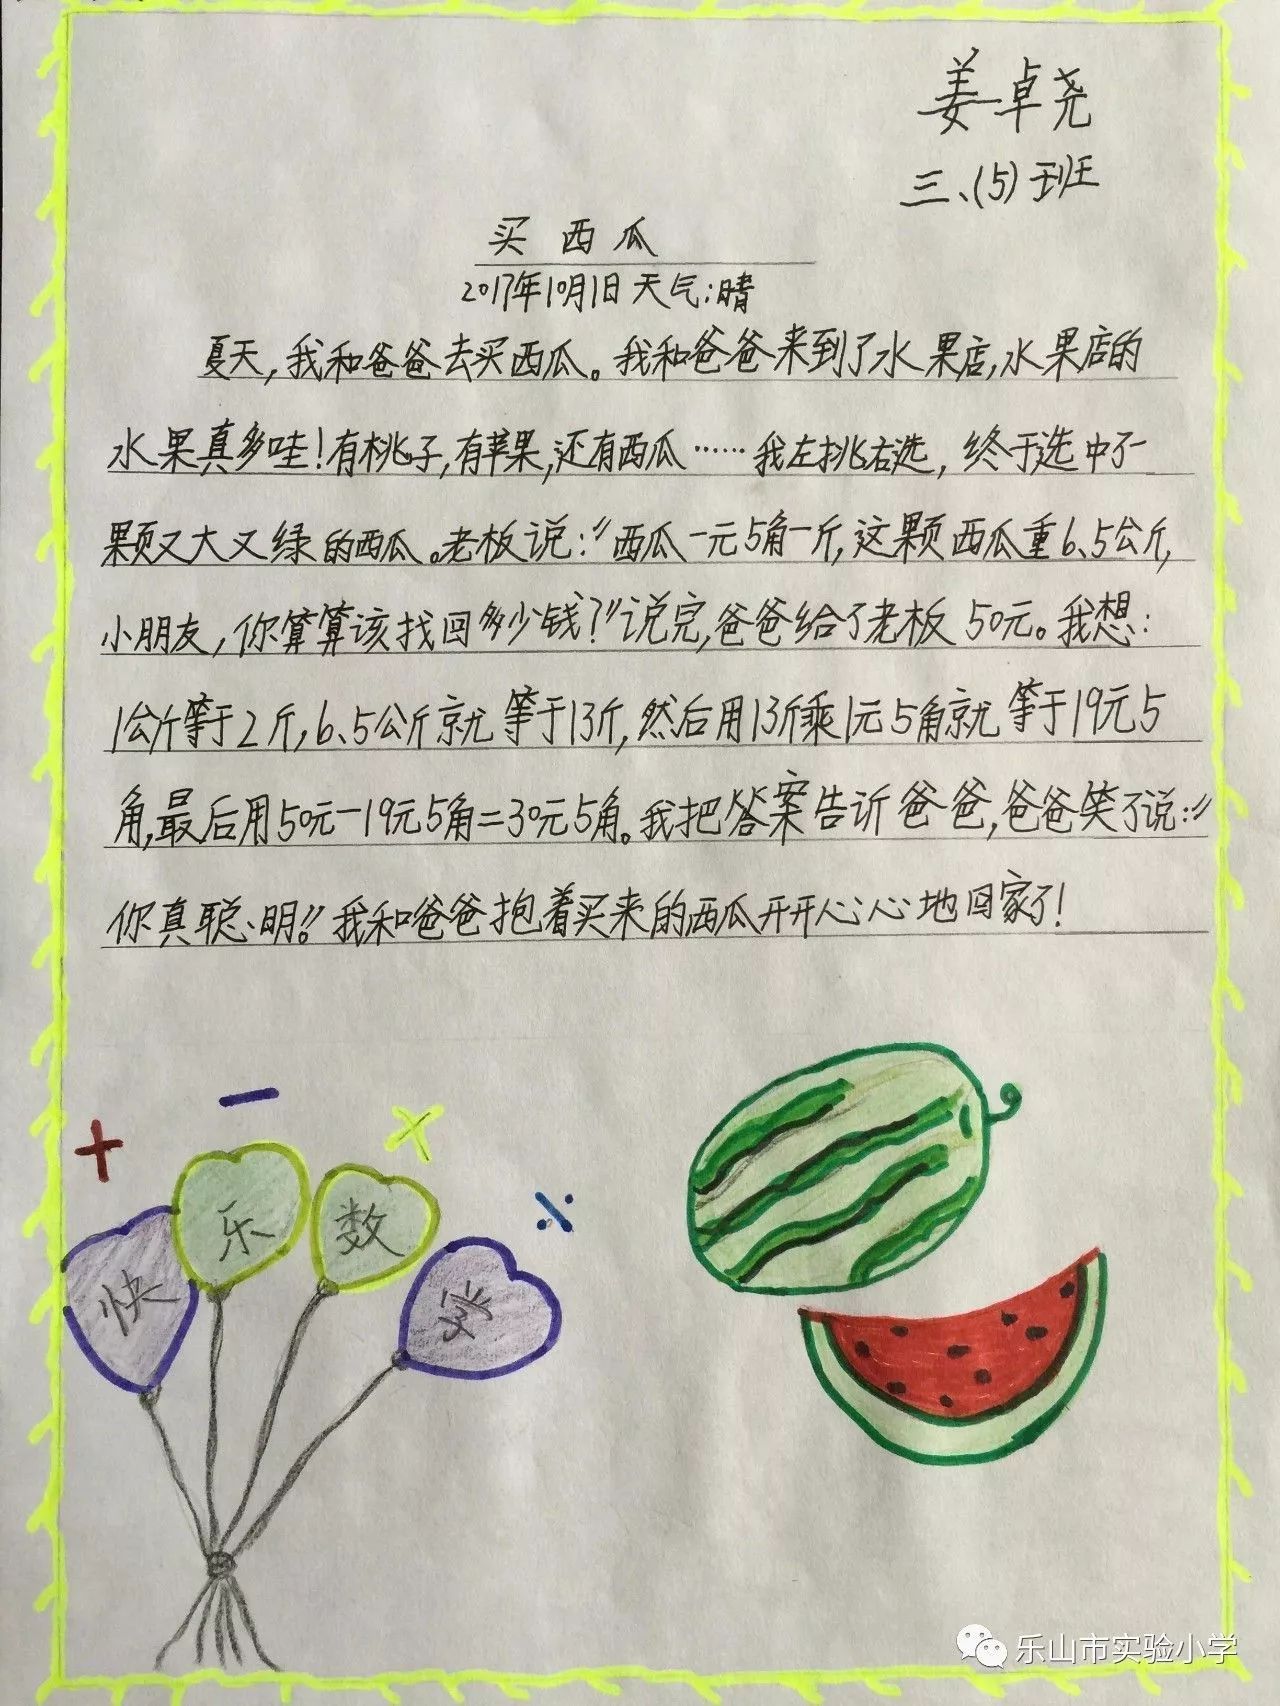 姜卓尧
三、(5)班
买西瓜
2017年10月1日天气:晴
夏天,我和爸爸去买西瓜。我和爸爸来到了水果店,水果店的
水果真多哇!有桃子,有苹果,还有西瓜……我左挑右选,终于选中了一
颗又大又绿的西瓜。老板说:"西瓜一元5角一斤,这颗西瓜重6.5公斤,
小朋友,你算算该找回多少钱?"说完,爸爸给了老板50元。我想:
1公斤等于2斤,6.5公斤就等于13斤,然后用13斤乘1元5角就等于19元5
角,最后用50元-19元5角=30元5角。我把答案告诉爸爸,爸爸笑了说:"
你真聪明!"我和爸爸抱着买来的西瓜开开心心地回家了!
+ - × ÷
快乐数学
乐山市实验小学